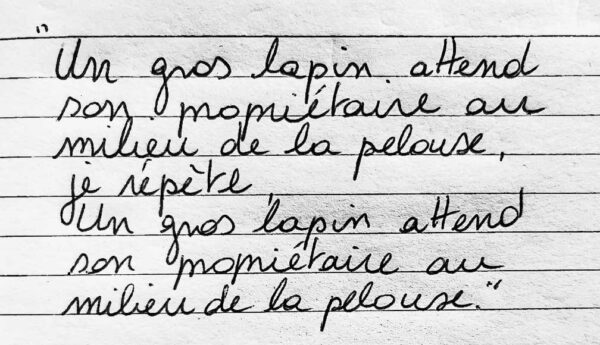 "Un gros lapin attend
son propriétaire au
milieu de la pelouse,
je répète,
Un gros lapin attend
son propriétaire au
milieu de la pelouse."